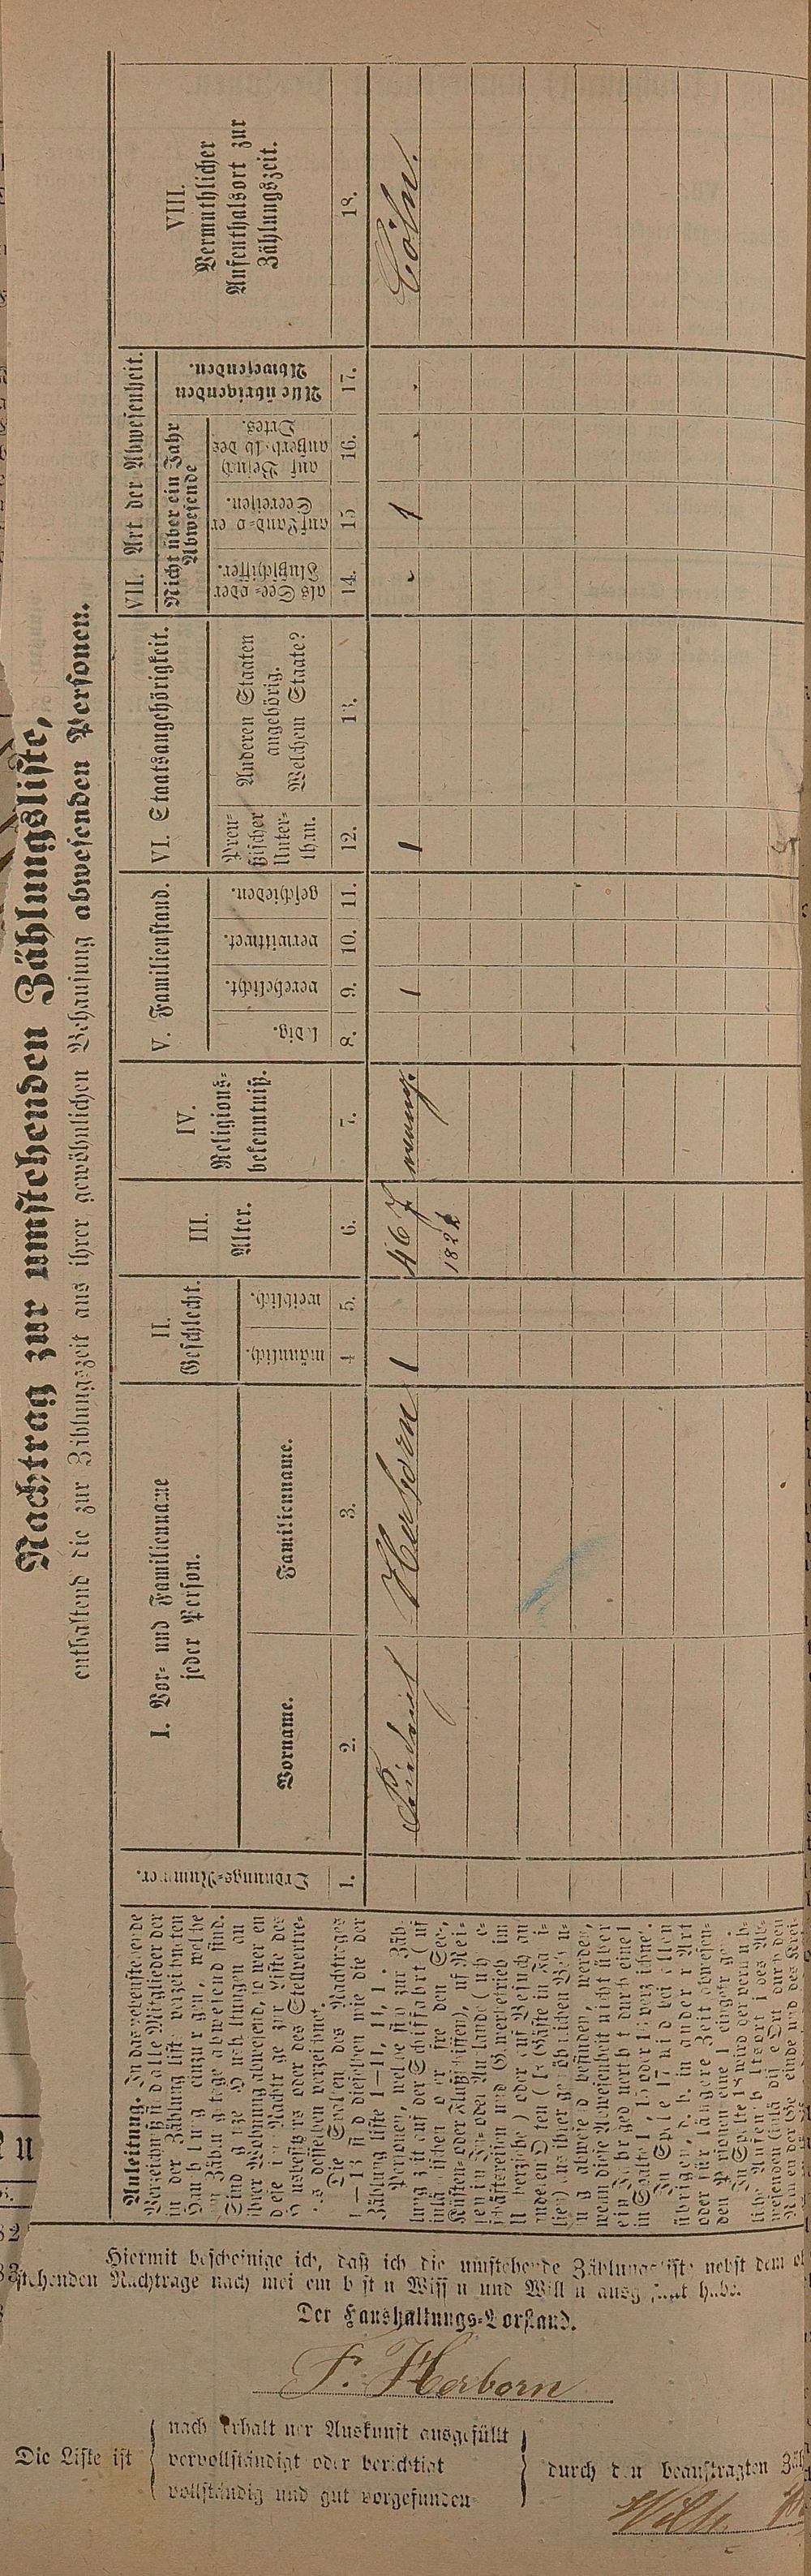 Nachtrag zur umstehenden Zählungsliste,
enthaltend die zur Zählungszeit aus ihrer gewöhnlichen Behausung abwesenden Personen.
Anleitung. In das nebenstehende
Verzeichniß sind alle Mitglieder der
in der Zählungsliste verzeichneten
Haushaltung einzutragen, welche
am Zählungstage abwesend sind.
Sind ganze Haushaltungen aus
ihrer Wohnung abwesend, so werden
diese im Nachtrage zur Liste des
Hausbesitzers oder des Stellvertre-
ters desselben verzeichnet.
Die Spalten des Nachtrages
1—13 sind dieselben wie die der
Zählungsliste
Personen, welche sich zur Zäh-
lungszeit auf der Schiffahrt (auf
inländischen oder fremden See-,
Küsten- oder Flußschiffen), auf Rei-
sen im In- oder Auslande
schäftsreisen und Gewerbebetrieb im
Umherziehen) oder auf Besuch an
anderen Orten (als Gäste in Fami-
lien) aus ihrer gewöhnlichen Behausu-
ng abwesend befinden, werden,
wenn diese Abwesenheit nicht über
ein Jahr gedauert hat durch eine 1
in Spalte 14, 15 oder 16 verzeichnet.
In Spalte 17 wird bei allen
übrigen, d. h. in anderer Art
oder für längere Zeit abwesen-
den Personen eine 1 eingetragen.
In Spalte 18 wird der vermuth-
liche Aufenthaltsort des Ab-
wesenden
Namen der Gemeinde und des Krei-
Ordnungs-Nummer.
I. Vor- und Familienname
jeder Person.
Vorname.
Familienname.
II.
Geschlecht.
männlich.
weiblich.
III.
Alter.
IV.
Religions-
bekenntniß.
V. Familienstand.
ledig.
verehelicht.
verwittwet.
geschieden.
VI. Staatsangehörigkeit.
Preu-
ßischer
Unter-
than.
Anderen Staaten
angehörig.
Welchem Staate?
VII. Art der Abwesenheit.
Nicht über ein Jahr
Abwesende
als See- oder
Flußschiffer.
auf Land- oder
Seereisen.
auf Besuch
außerhalb des
Ortes.
Alle übrigenden
Abwesenden.
VIII.
Vermuthlicher
Aufenthaltsort zur
Zählungszeit.
1. 2. 3. 4 5. 6. 7. 8. 9. 10. 11. 12. 13. 14. 15 16. 17. 18.
Friedrich Herborn 1 46 J evang. 1 1 1 Cöln.
182
Hiermit bescheinige ich, daß ich die umstehende Zählungsliste nebst dem
stehenden Nachtrage nach meinem besten Wissen und Willen ausgefüllt habe.
Der Haushaltungs-Vorstand.
F. Herborn
Die Liste ist
nach Erhaltener Auskunft ausgefüllt
vervollständigt oder berichtigt
vollständig und gut vorgefunden
durch den beauftragten
Wilh.